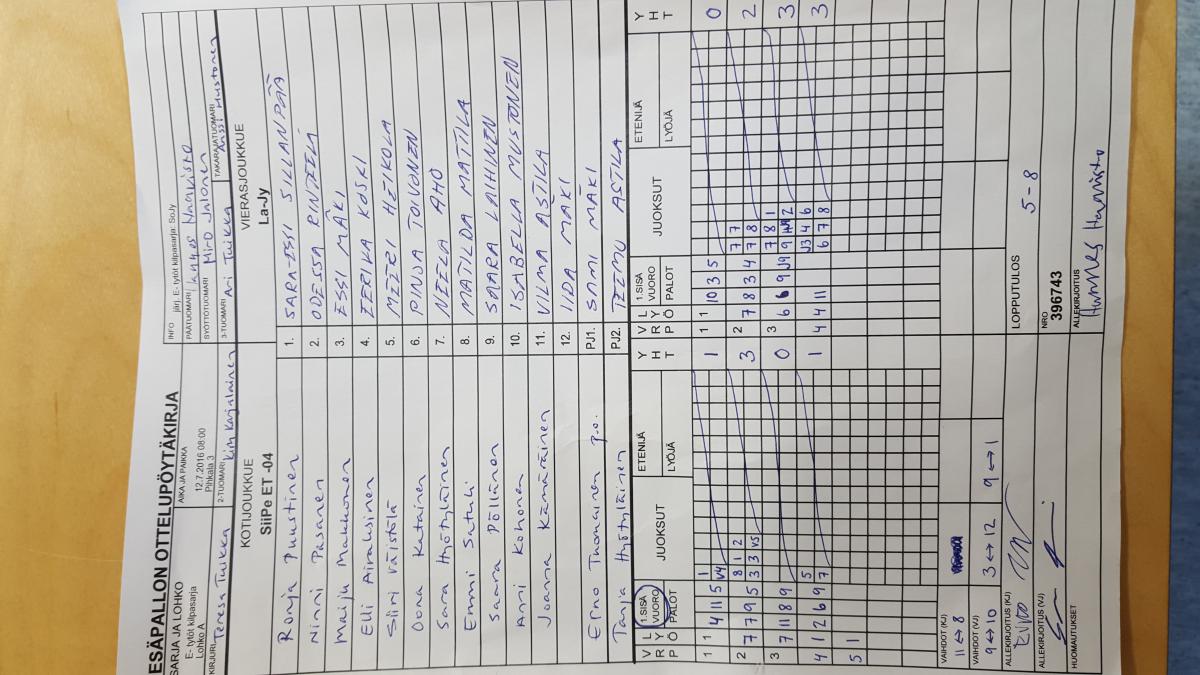 ESÄPALLON OTTELUPÖYTÄKIRJA
SARJA JA LOHKO
E- tytöt kilpasarja
Lohko A
AIKA JA PAIKKA
12.7.2016 08:00
Pihkala 3
INFO järj. E- tytöt kilpasarja: SoJy
PÄÄTUOMARI
SYÖTTÖTUOMARI Miro Jalonen
KIRJURI Teresa Tuikka
2-TUOMARI Kim Karjalainen
3-TUOMARI Ari Tuikka
TAKARAJATUOMARI Anssi Mustonen
KOTIJOUKKUE
SiiPe ET -04
VIERASJOUKKUE
La-Jy
Ronja Puustinen 1. SARA-ESSI SILLANPÄÄ
Ninni Pasanen 2. ODESSA RINTEELÄ
Maiju Makkonen 3. ESSI MÄKI
Elli Airaksinen 4. EERIKA KOSKI
Siiri Väistölä 5. MEERI HEIKOLA
Oona Katainen 6. PINJA TOIVONEN
Sara Hyötyläinen 7. NEELA AHO
Emmi Satuli 8. MATILDA MATTILA
Saara Pöllänen 9. SAARA LAIHINEN
Anni Kohonen 10. ISABELLA MUSTONEN
Joanna Kämäräinen 11. VILMA ASTILA
12. IIDA MÄKI
Erno Tuomainen p.o. PJ1. SAMI MÄKI
Tanja Hyötyläinen PJ2. TEEMU ASTILA
V L
R Y
P Ö
1.SISÄ
VUORO
PALOT
JUOKSUT
ETENIJÄ
LYÖJÄ
Y
H
T
V L
R Y
P Ö
1.SISÄ
VUORO
PALOT
JUOKSUT
ETENIJÄ
LYÖJÄ
Y
H
T
1 1 4 11 5 1 V4 1
1 1 10 3 5 0
2 7 7 9 5 8 1 2 3 3 V5 3
2 7 8 3 4 7 7 7 8 2
3 7 11 8 9 0
3 6 6 9 J9 7 8 1 9 2 3
4 1 2 6 9 5 7 1
4 4 11 J3 4 6 6 7 8 3
5 1
VAIHDOT (KJ)
11 ↔ 8
VAIHDOT (VJ)
9 ↔ 10 3 ↔ 12 9 ↔ 1
LOPPUTULOS
5 - 8
ALLEKIRJOITUS (KJ)
ALLEKIRJOITUS (VJ)
NRO
396743
ALLEKIRJOITUS
HUOMAUTUKSET